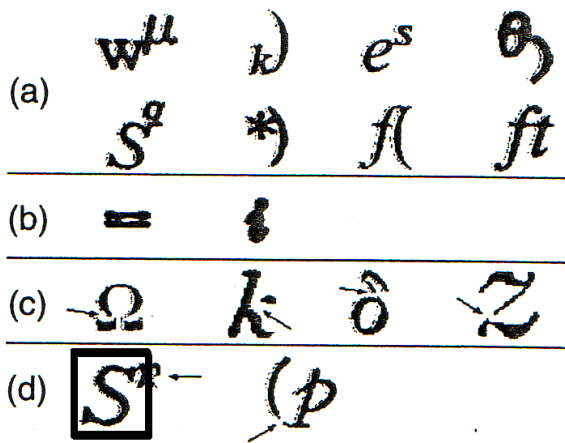 (a) w^μ k) e^s ϑ)
S^q *) f( ft
(b) = i
(c) Ω k ô Z
(d) S* (p